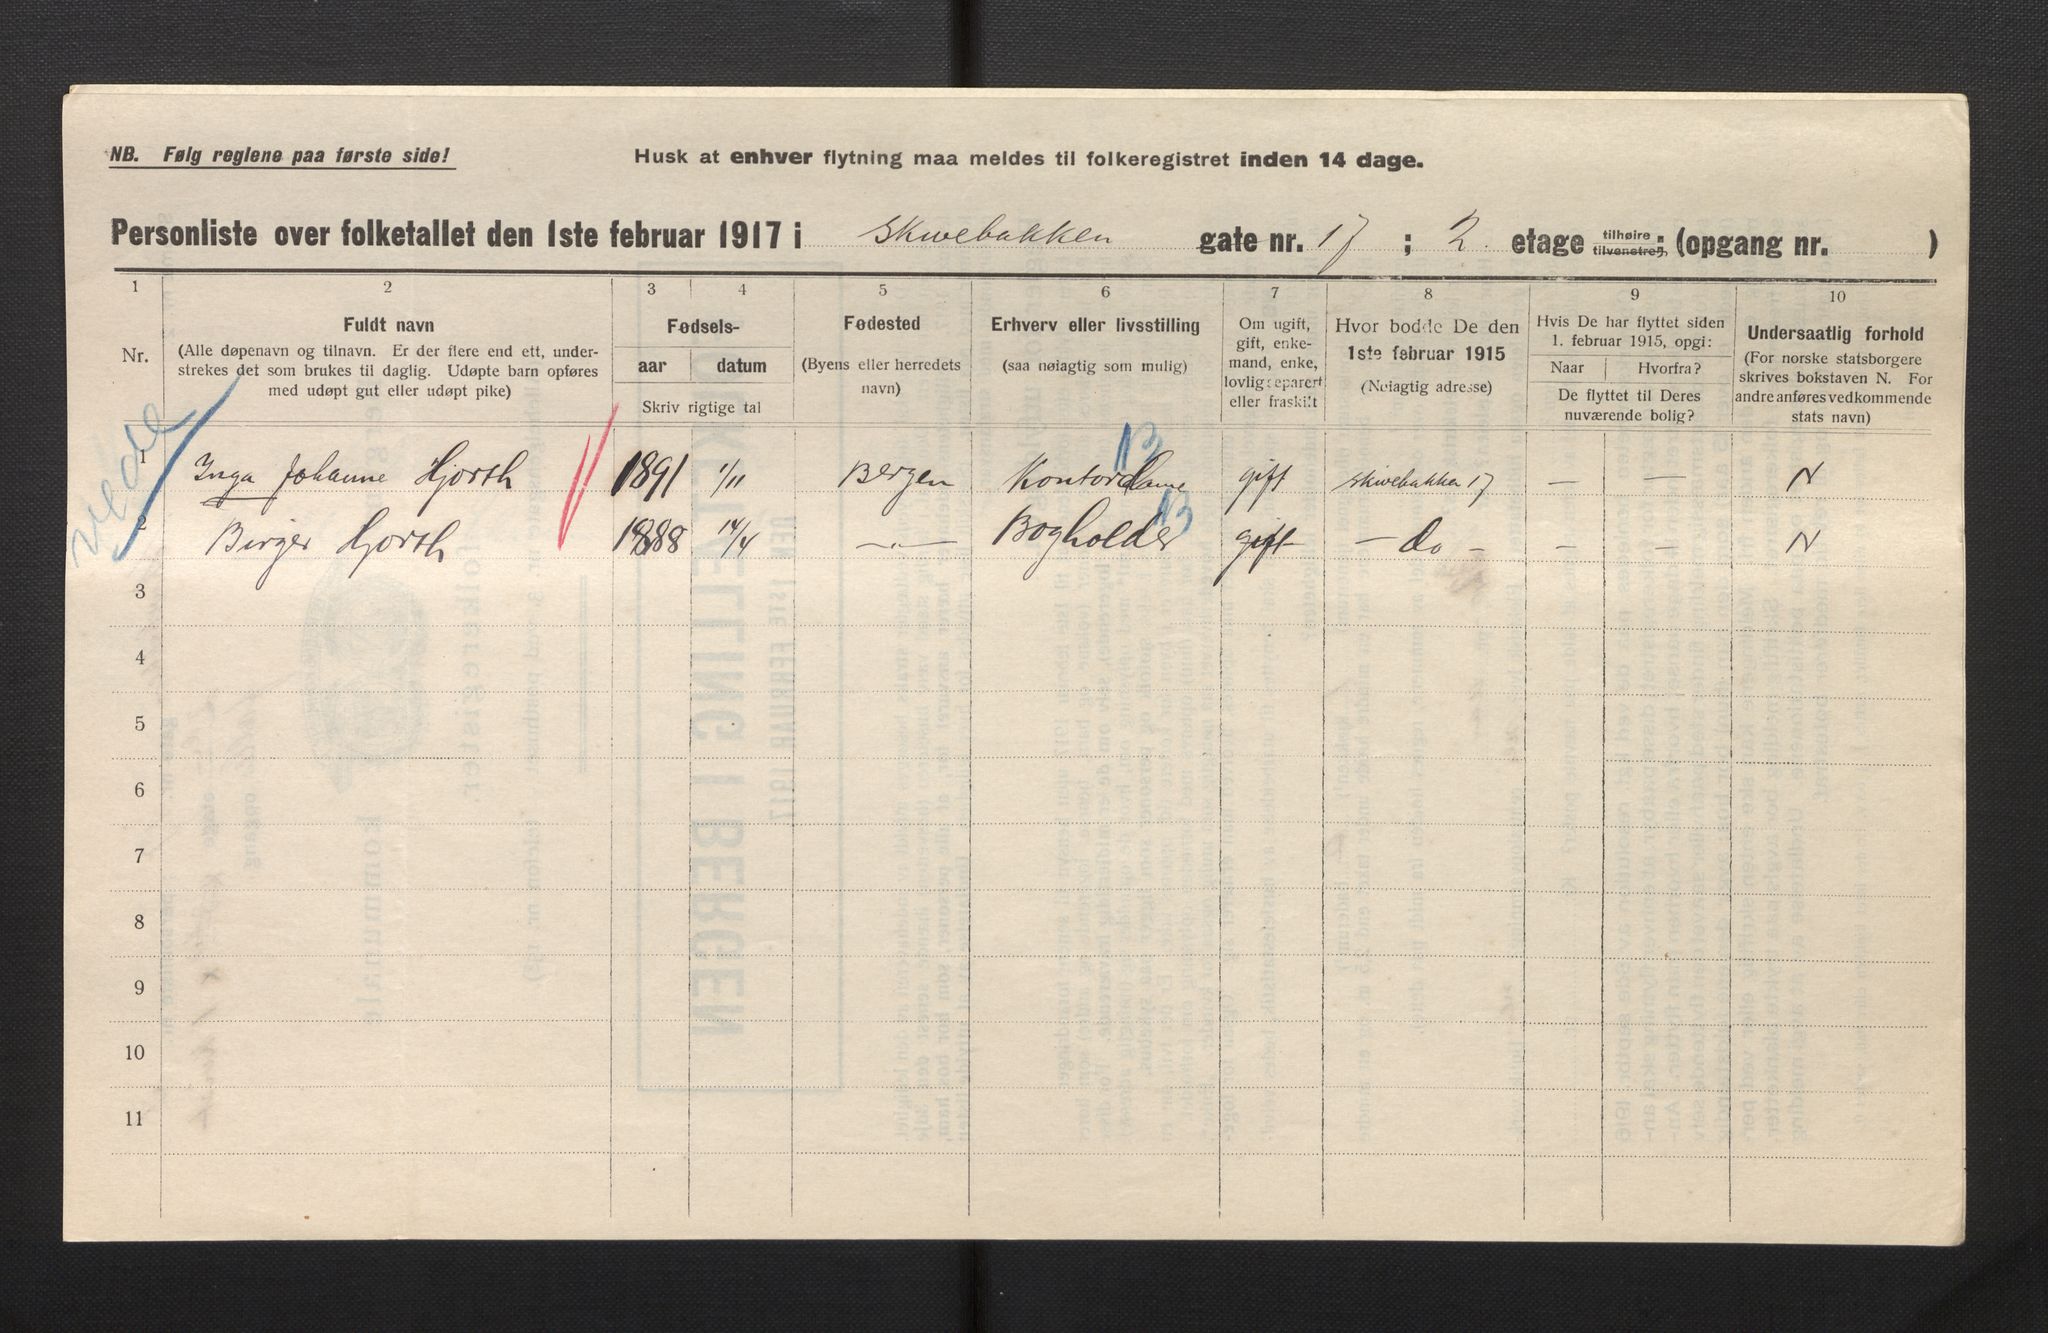 NB. Følg reglene paa første side!
Husk at enhver flytning maa meldes til folkeregistret inden 14 dage.
Personliste over folketallet den 1ste februar 1917 i Skivebakken gate nr. 17 ; 2 etage tilhøire tilvenstre ; (opgang nr. )
1 2 3 4 5 6 7 8 9 10
Nr.
Fuldt navn
(Alle døpenavn og tilnavn. Er der flere end ett, under-
strekes det som brukes til daglig. Udøpte barn opføres
med udøpt gut eller udøpt pike)
Fødsels-
aar datum
Skriv rigtige tal
Fødested
(Byens eller herredets
navn)
Erhverv eller livsstilling
(saa nøiagtig som mulig)
Om ugift,
gift, enke-
mand, enke,
lovlig separert
eller fraskilt
Hvor bodde De den
1ste februar 1915
(Nøiagtig adresse)
Hvis De har flyttet siden
1. februar 1915, opgi:
Naar Hvorfra?
De flyttet til Deres
nuværende bolig?
Undersaatlig forhold
(For norske statsborgere
skrives bokstaven N. For
andre anføres vedkommende
stats navn)
1 Inga Johanne Hjorth 1891 1/11 Bergen Kontordame gift Skivebakken 17 — — N
2 Birger Hjorth 1888 14/4 —„— Bogholder gift — do — — — N
3
4
5
6
7
8
9
10
11